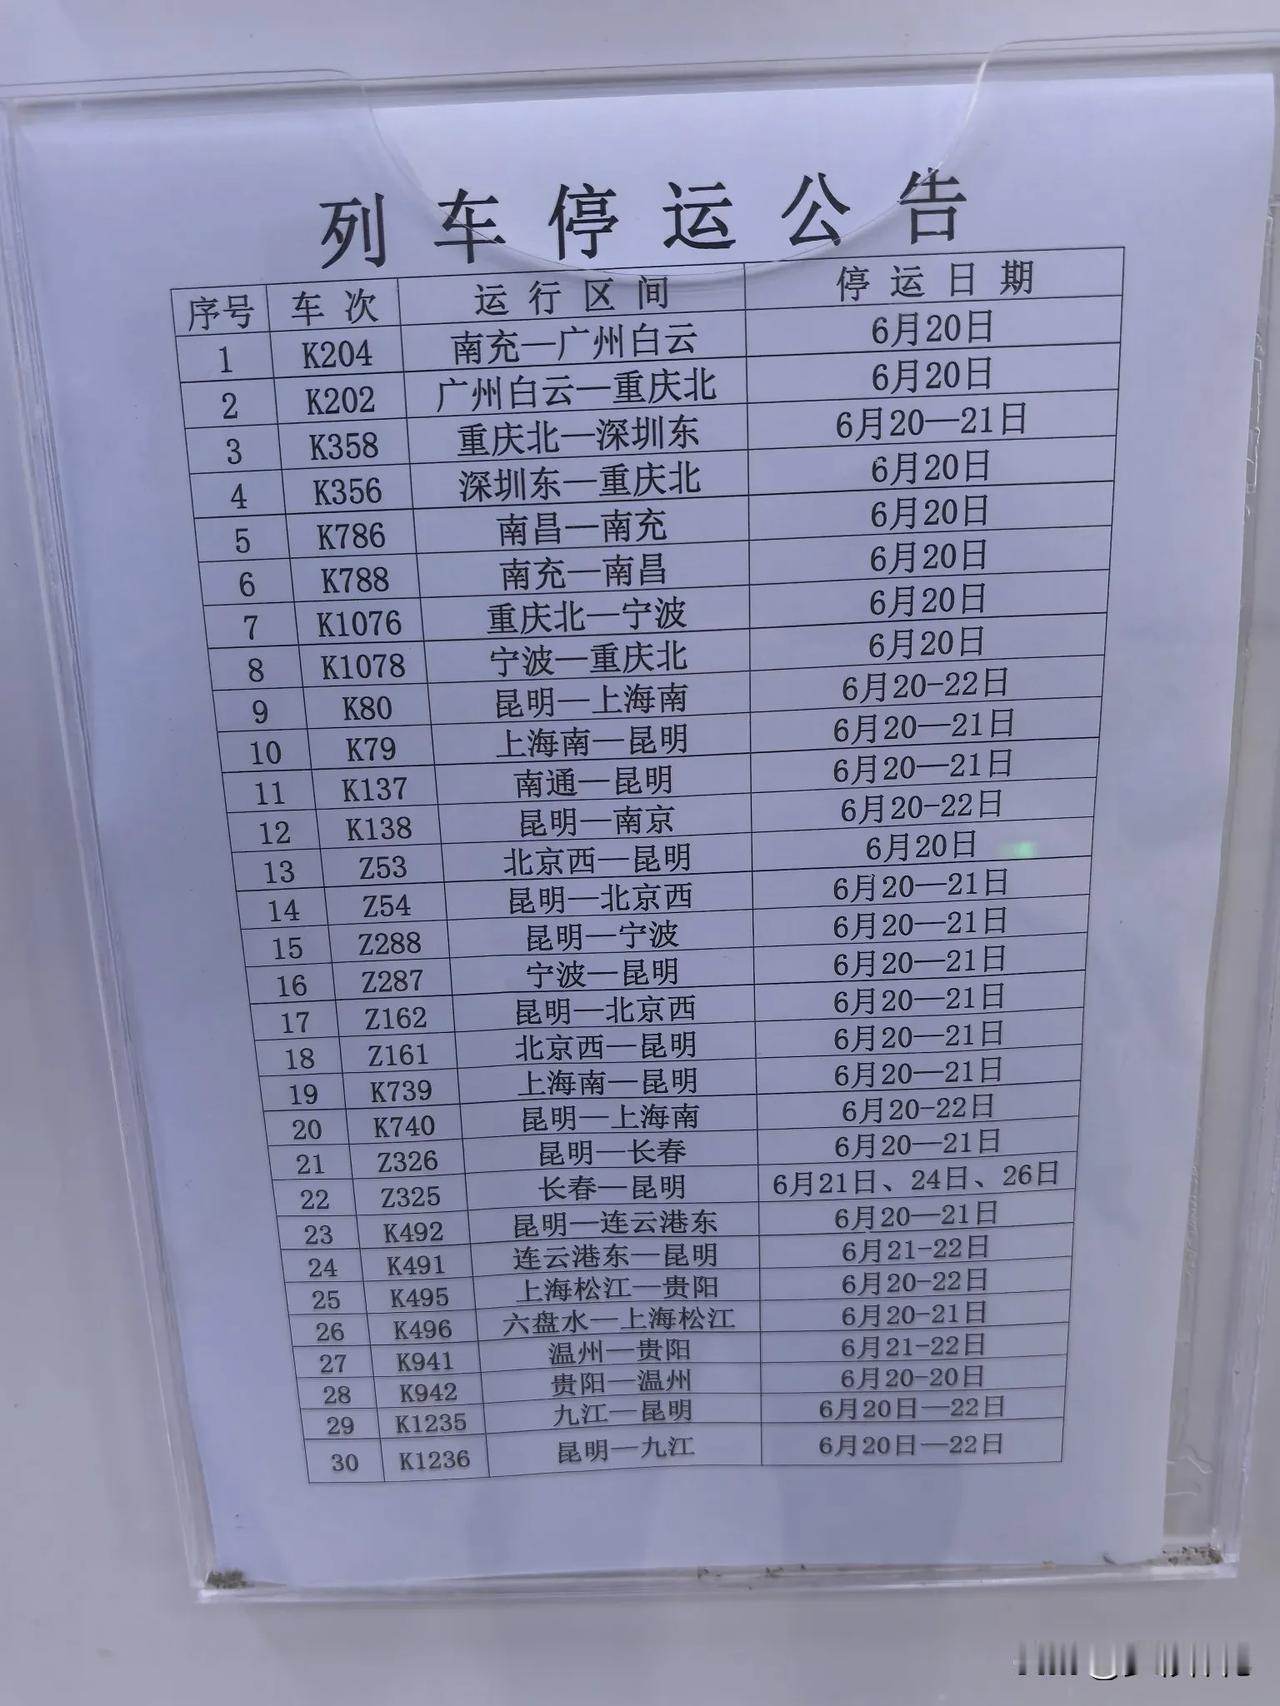 列车停运公告
序号 车次 运行区间 停运日期
1 K204 南充—广州白云 6月20日
2 K202 广州白云—重庆北 6月20日
3 K358 重庆北—深圳东 6月20—21日
4 K356 深圳东—重庆北 6月20日
5 K786 南昌—南充 6月20日
6 K788 南充—南昌 6月20日
7 K1076 重庆北—宁波 6月20日
8 K1078 宁波—重庆北 6月20日
9 K80 昆明—上海南 6月20-22日
10 K79 上海南—昆明 6月20—21日
11 K137 南通—昆明 6月20—21日
12 K138 昆明—南京 6月20-22日
13 Z53 北京西—昆明 6月20日
14 Z54 昆明—北京西 6月20—21日
15 Z288 昆明—宁波 6月20—21日
16 Z287 宁波—昆明 6月20—21日
17 Z162 昆明—北京西 6月20—21日
18 Z161 北京西—昆明 6月20—21日
19 K739 上海南—昆明 6月20—21日
20 K740 昆明—上海南 6月20-22日
21 Z326 昆明—长春 6月20—21日
22 Z325 长春—昆明 6月21日、24日、26日
23 K492 昆明—连云港东 6月20—21日
24 K491 连云港东—昆明 6月21-22日
25 K495 上海松江—贵阳 6月20-22日
26 K496 六盘水—上海松江 6月20-21日
27 K941 温州—贵阳 6月21-22日
28 K942 贵阳—温州 6月20-20日
29 K1235 九江—昆明 6月20日—22日
30 K1236 昆明—九江 6月20日—22日